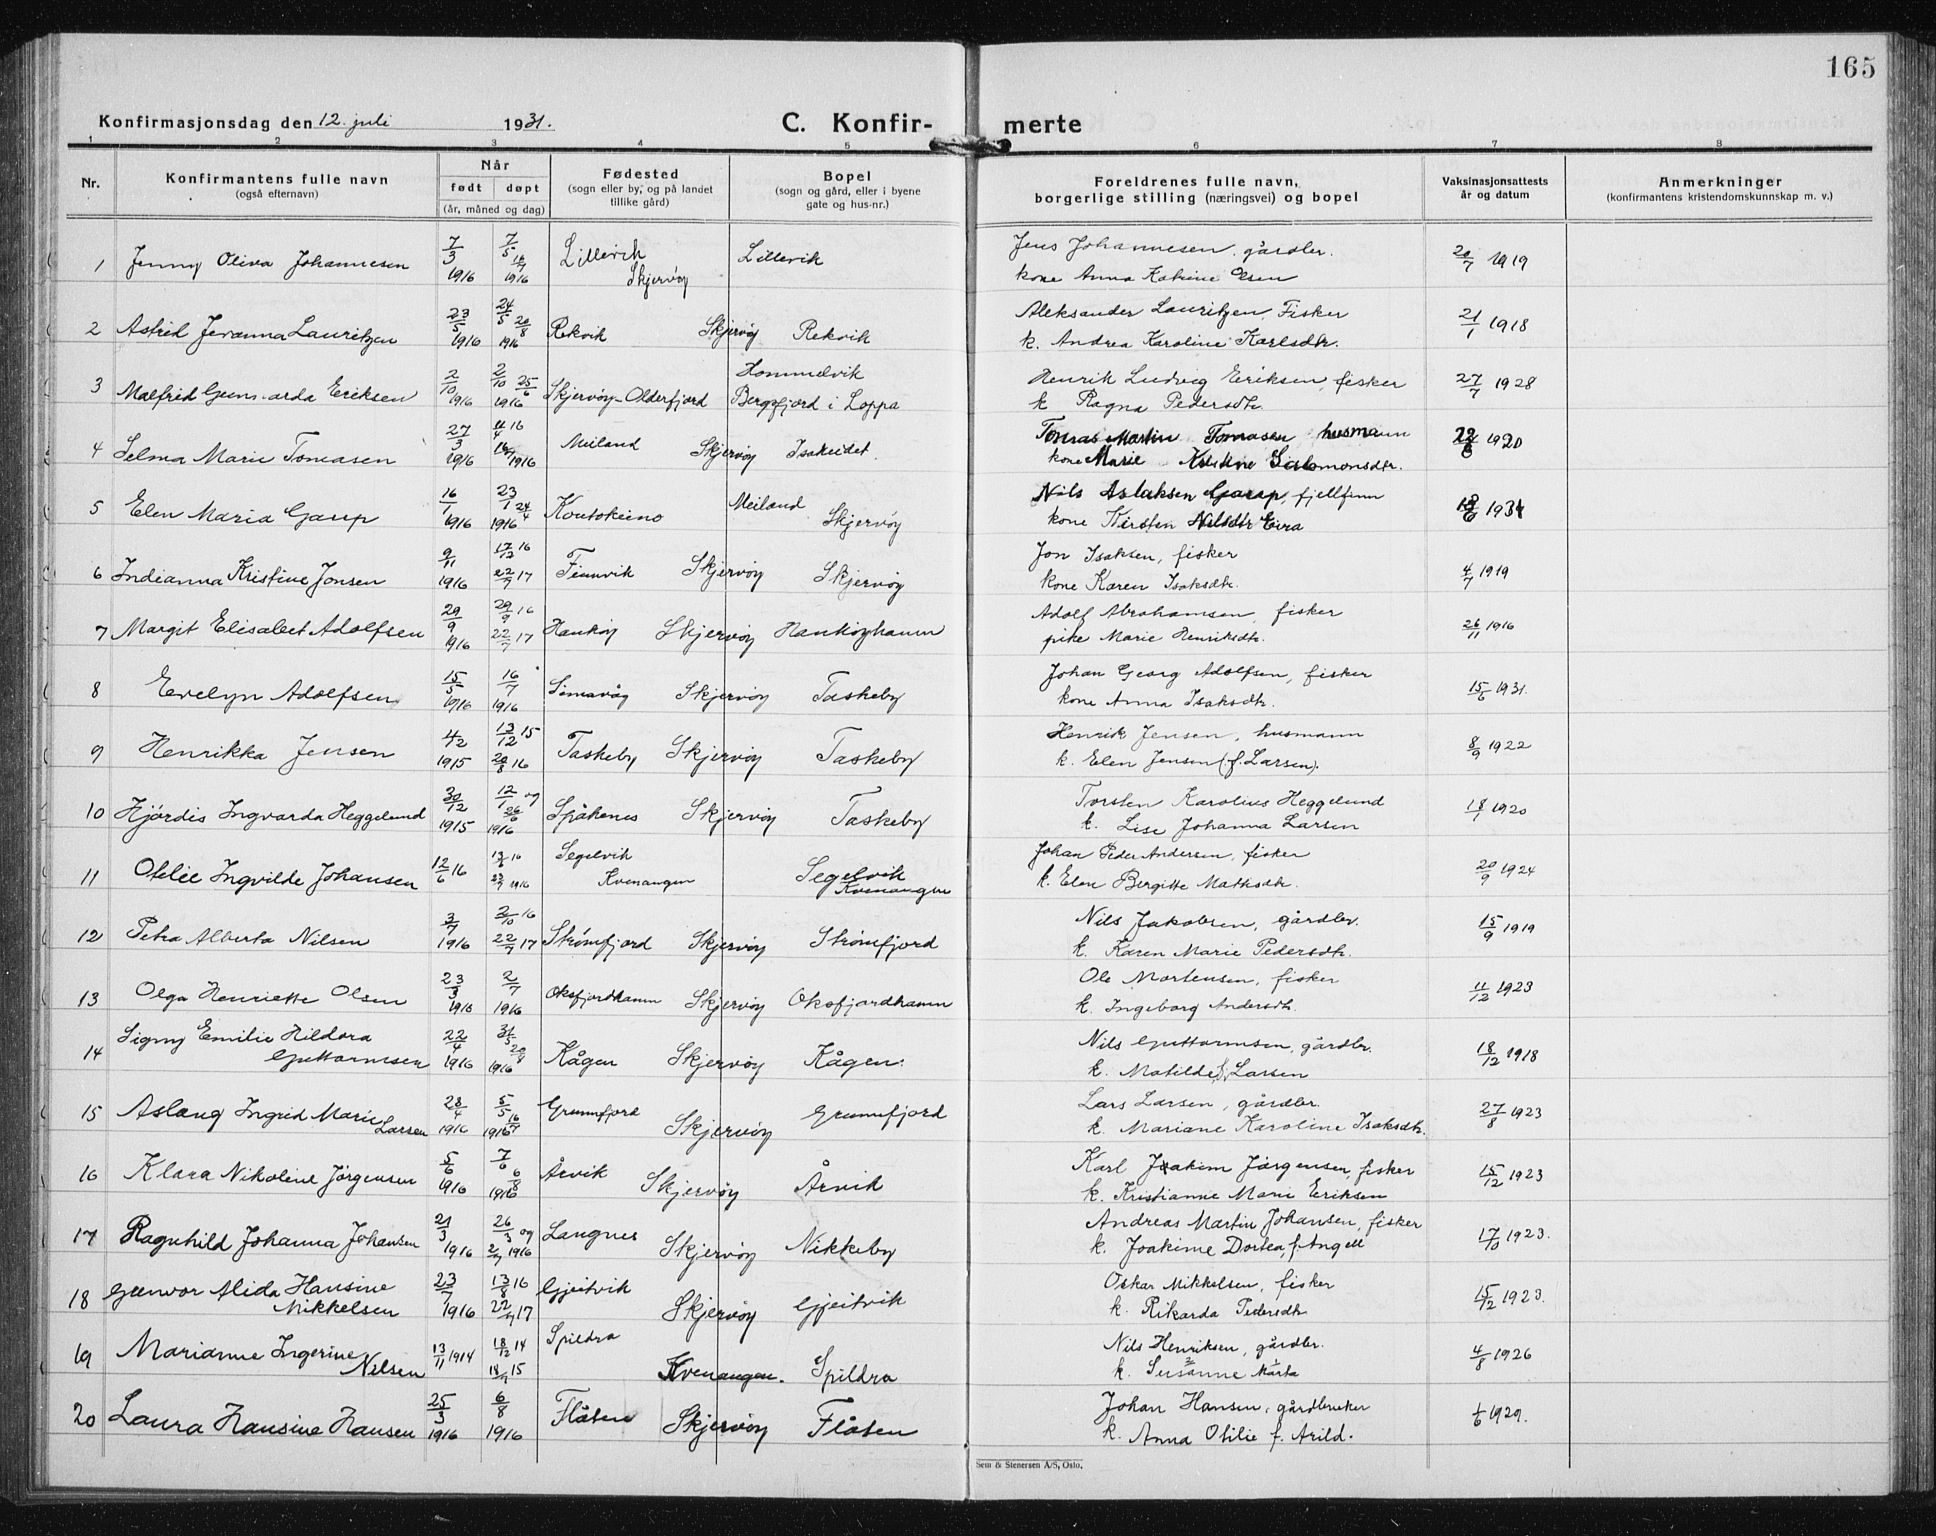 165
Konfirmasjonsdag den 12. juli 1931.
C. Konfir- merte
1 2 3 4 5 6 7 8
Nr.
Konfirmantens fulle navn
(også efternavn)
Når
født døpt
(år, måned og dag)
Fødested
(sogn eller by, og på landet
tillike gård)
Bopel
(sogn og gård, eller i byene
gate og hus-nr.)
Foreldrenes fulle navn,
borgerlige stilling (næringsvei) og bopel
Vaksinasjonsattests
år og datum
Anmerkninger
(konfirmantens kristendomskunnskap m. v.)
1 Jenny Oliva Johannesen 7/3 1916 7/5 16/7 1916 Lillevik Skjervöy Lillevik
Jens Johannesen, gårdbr.
kone Anna Katrine Olsen
20/7 1919
2 Astrid Jevanna Lauritzen 23/5 1916 24/5 20/8 1916 Rekvik Skjervöy Rekvik
Aleksander Lauritzen, Fisker
k. Andrea Karoline Karlsdtr.
21/1 1918
3 Malfrid Eriksen 2/10 1916 2/10 25/6 1916 Skjervöy-Olderfjord Hommelvik
Bergsfjord i Loppa
Henrik Ludvig Eriksen, fisker
k Ragna Pedersdtr.
27/7 1928
4 Selma Marie Tomasen 27/3 1916 1916 Meiland Skjervöy Isakeidet.
Tomas Martin Tomasen husmann
kone Marie Kristine Salomonsdtr.
1920
5 Elen Maria Gaup 16/1 1916 23/1 24/4 1916 Koutokeino Meiland
Skjervöy
Nils Aslaksen Gaup, fjellfinn
kone Kirsten Nilsdtr Eira
1931
6 Indianna Kristine Jonsen 9/11 1916 17/12 16 22/7 17 Finnvik Skjervöy Skjervöy
Jon Isaksen, fisker
kone Karen Isaksdtr.
4/7 1919
7 Margit Elisabet Adolfsen 29/9 1916 29/9 16 22/7 17 Hauköy Skjervöy Hauköyhamn
Adolf Abrahamsen, fisker
pike Marie Henriksdtr.
26/11 1916
8 Evelyn Adolfsen 15/5 1916 16/7 1916 Simavåg Skjervöy Taskeby
Johan Georg Adolfsen, fisker
kone Anna Isaksdtr.
15/6 1931.
9 Henrikka Jensen 4/2 1915 13/12 15 20/8 16 Taskeby Skjervöy Taskeby
Henrik Jensen, husmann
k. Elen Jensen (f. Larsen).
8/9 1922
10 Hjördis Ingvarda Heggelund 30/12 1915 12/1 og 26/6 1916 Spåkenes Skjervöy Taskeby
Torsten Karolius Heggelund
k. Lise Johanna Larsen
18/1 1920
11 Otilie Ingvilde Johansen 12/6 16 13/6 16 23/7 1916 Segelvik
Kvenangen Segelvik
Kvenangen
Johan Peder Andersen, fisker
k. Elen Bergitte Mathisdtr.
20/9 1924
12 Petra Alberta Nilsen 3/7 1916 2/10 16 22/7 17 Strömfjord Skjervöy Strömfjord
Nils Jakobsen, gårdbr.
k. Karen Marie Pedersdtr.
15/9 1919
13 Olga Henriette Olsen 23/3 1916 2/7 1916 Oksfjordhamn Skjervöy Oksfjordhamn
Ole Mortensen, fisker
k. Ingeborg Andersdtr.
11/12 1923
14 Signy Emilie Hildora
Guttormsen 22/4 1916 31/5 20/8 1916 Kågen Skjervöy Kågen.
Nils Guttormsen, gårdbr.
k. Matilde f. Larsen
18/12 1918
15 Aslaug Ingrid Marie
Larsen 28/4 1916 5/5 16/7 1916 Grunnfjord Skjervöy Grunnfjord
Lars Larsen, gårdbr.
k. Mariane Karoline Isaksdtr.
27/8 1923
16 Klara Nikoline Jörgensen 5/6 1916 7/6 6/8 1916 Årvik Skjervöy Årvik
Karl Joakim Jörgensen fisker
k. Kristianne Marie Eriksen
15/12 1923
17 Ragnhild Johanna Johansen 21/3 1916 26/3 og 2/7 1916 Langnes Skjervöy Nikkeby
Andreas Martin Johansen, fisker
k. Joakime Dortea, f. Angell
17/10 1923.
18 Gunvor Alida Hansine
Mikkelsen 23/7 1916 13/8 16 22/7 17 Gjeitvik Skjervöy Gjeitvik
Oskar Mikkelsen, fisker
k. Rikarda Pedersdtr
15/12 1923.
19 Marianne Ingerine
Nilsen 13/11 1914 18/12 14 18/7 15 Spildra Kvenangen. Spildra
Nils Henriksen, gårdbr.
k. Susanne Marta
4/8 1926
20 Laura Hansine Hansen 25/3 1916 6/8 1916 Flåten Skjervöy Flåten
Johan Hansen, gårdbruker
k. Anna Otilie f. Arild.
1/6 1929.
Sem & Stenersen A/S, Oslo.